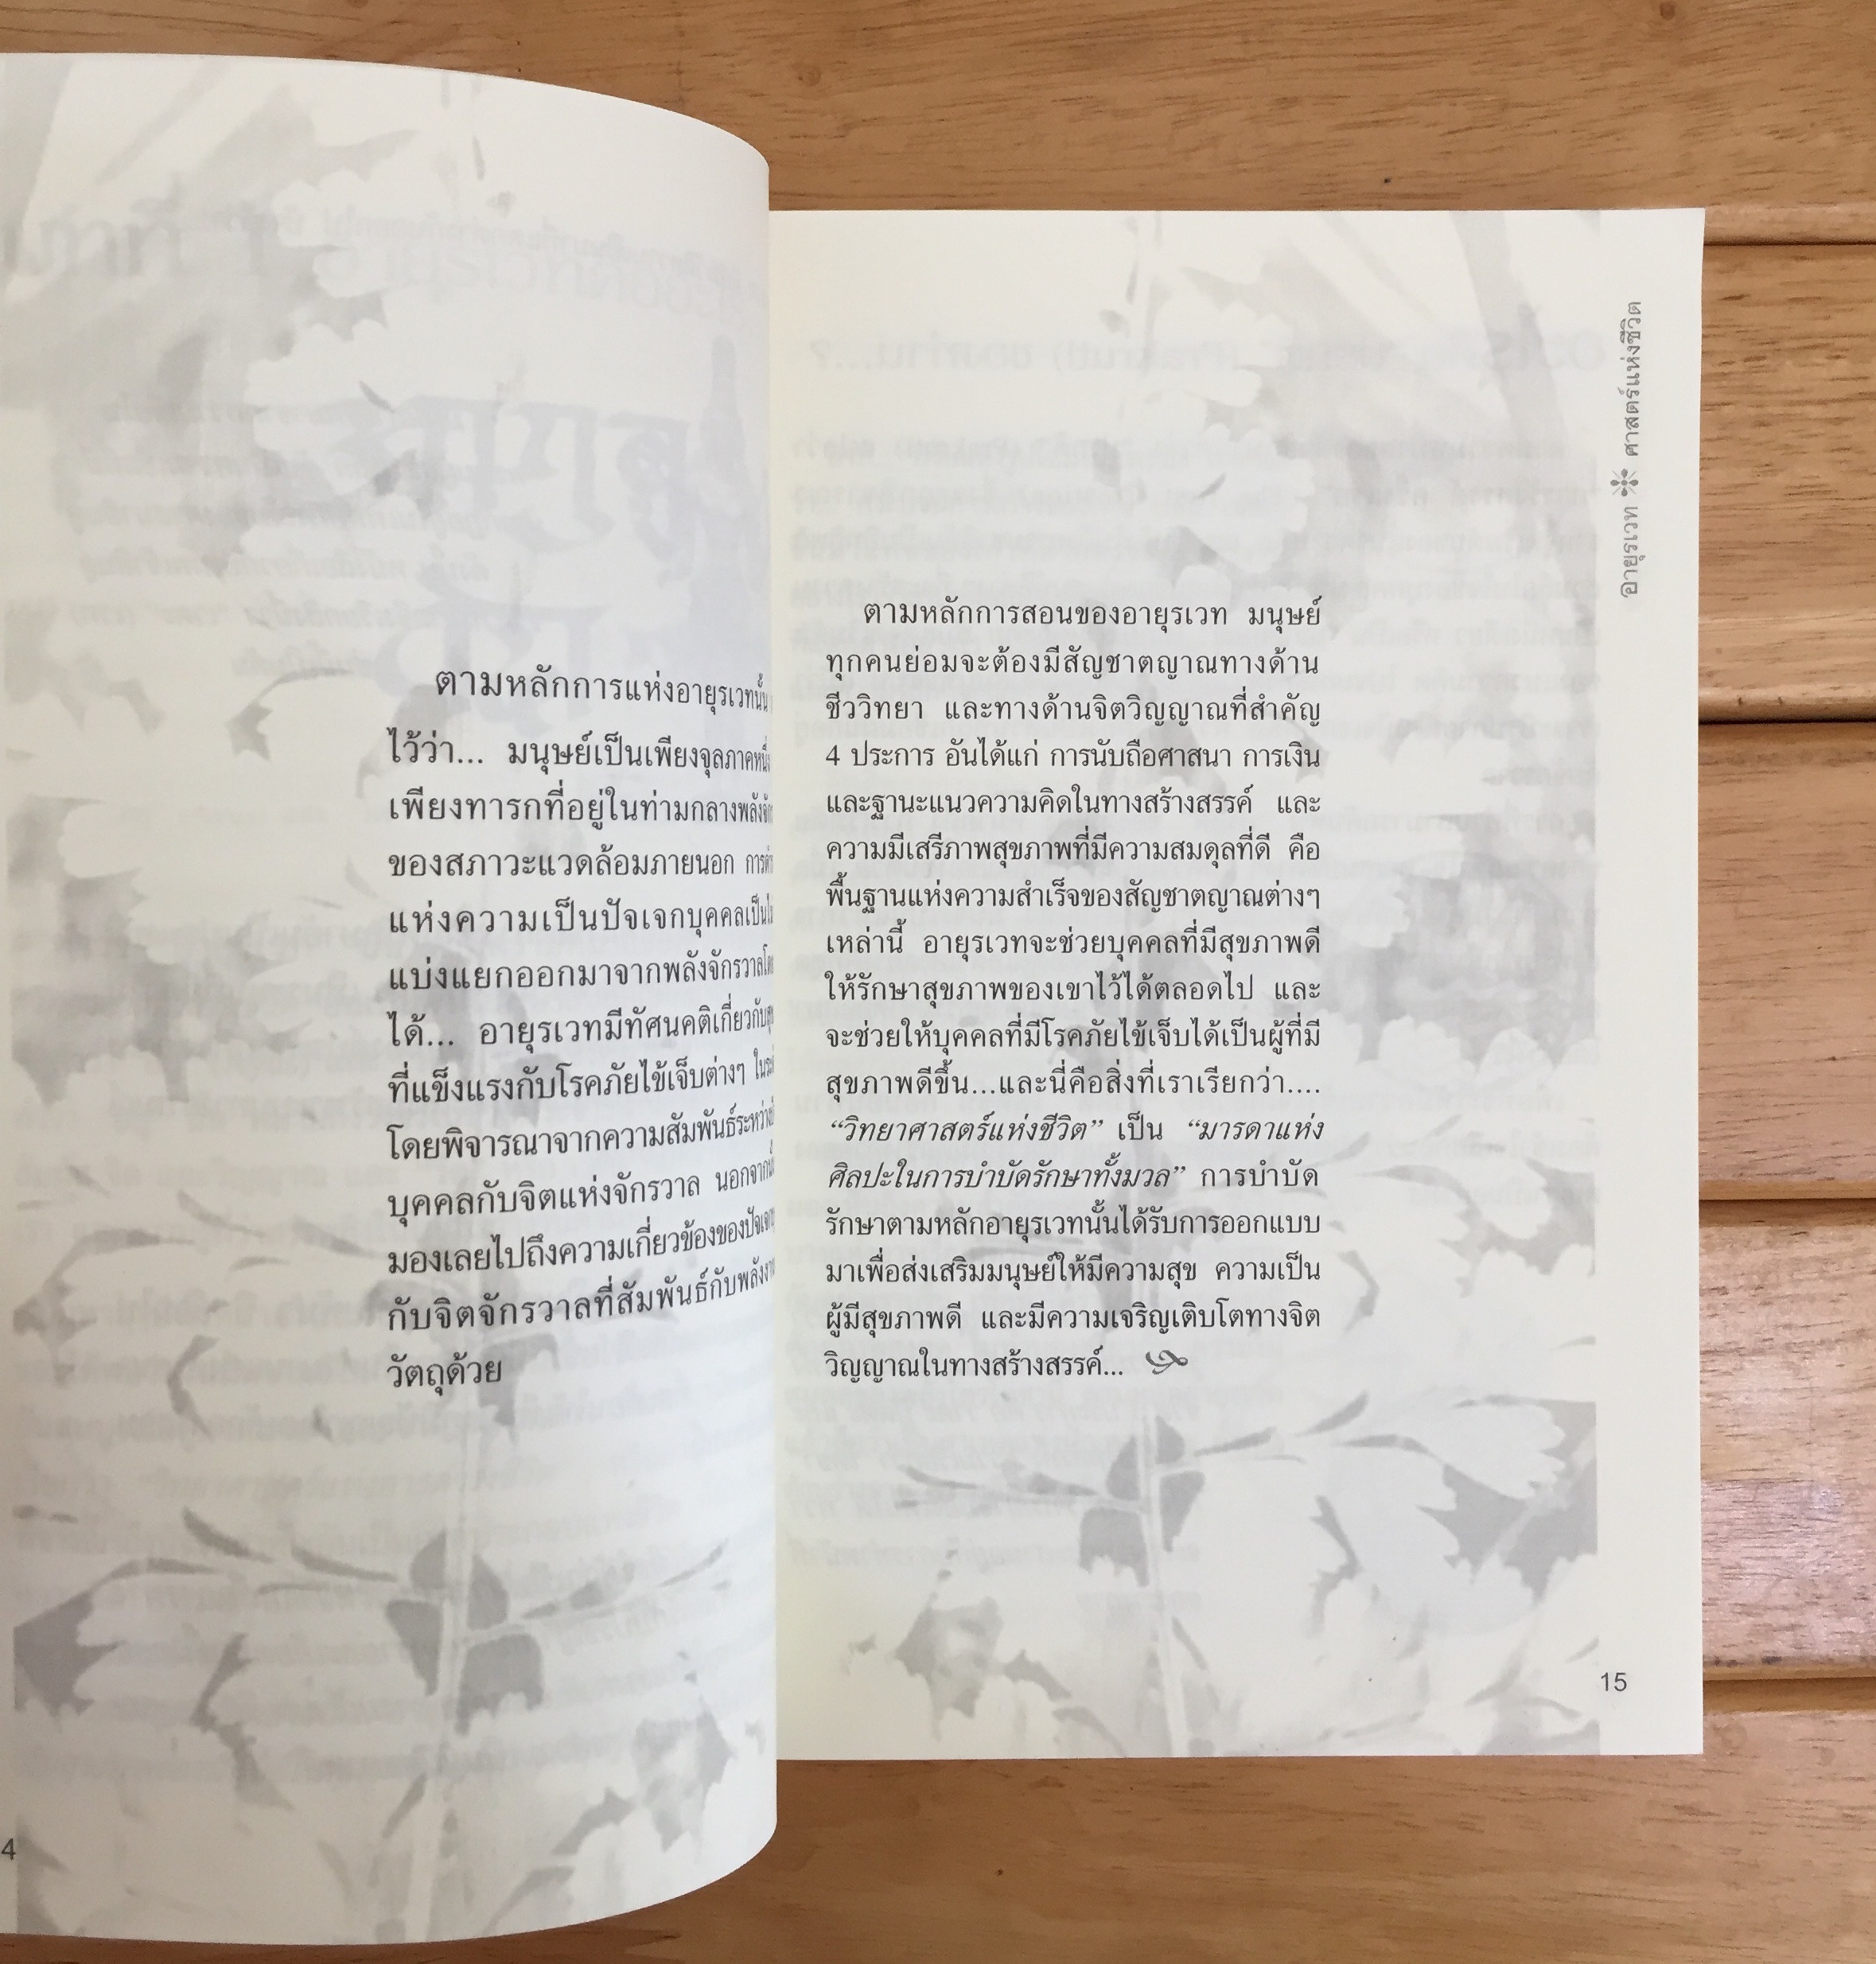 ตามหลักการแห่งอายุรเวทนั้น
ไว้ว่า... มนุษย์เป็นเพียงจุลภาคหนึ่ง
เพียงทารกที่อยู่ในท่ามกลางพลังจัก
ของสภาวะแวดล้อมภายนอก
แห่งความเป็นปัจเจกบุคคลเป็น
แบ่งแยกออกมาจากพลังจักรวาล
ได้... อายุรเวทมีทัศนคติเกี่ยวกับ
ที่แข็งแรงกับโรคภัยไข้เจ็บต่างๆ
โดยพิจารณาจากความสัมพันธ์ระหว่าง
บุคคลกับจิตแห่งจักรวาล
มองเลยไปถึงความเกี่ยวข้องของ
กับจิตจักรวาลที่สัมพันธ์กับพลังงาน
วัตถุด้วย
4
อายุรเวท ศาสตร์แห่งชีวิต
ตามหลักการสอนของอายุรเวท มนุษย์
ทุกคนย่อมจะต้องมีสัญชาตญาณทางด้าน
ชีววิทยา และทางด้านจิตวิญญาณที่สำคัญ
4 ประการ อันได้แก่ การนับถือศาสนา การเงิน
และฐานะแนวความคิดในทางสร้างสรรค์ และ
ความมีเสรีภาพสุขภาพที่มีความสมดุลที่ดี คือ
พื้นฐานแห่งความสำเร็จของสัญชาตญาณต่างๆ
เหล่านี้ อายุรเวทจะช่วยบุคคลที่มีสุขภาพดี
ให้รักษาสุขภาพของเขาไว้ได้ตลอดไป และ
จะช่วยให้บุคคลที่มีโรคภัยไข้เจ็บได้เป็นผู้ที่มี
สุขภาพดีขึ้น...และนี่คือสิ่งที่เราเรียกว่า....
“วิทยาศาสตร์แห่งชีวิต” เป็น “มารดาแห่ง
ศิลปะในการบำบัดรักษาทั้งมวล” การบำบัด
รักษาตามหลักอายุรเวทนั้นได้รับการออกแบบ
มาเพื่อส่งเสริมมนุษย์ให้มีความสุข ความเป็น
ผู้มีสุขภาพดี และมีความเจริญเติบโตทางจิต
วิญญาณในทางสร้างสรรค์...
15